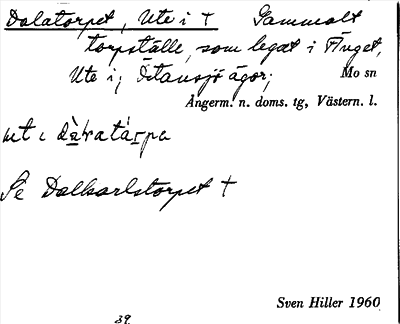 Dalatorpet, Ute i †  Gammalt
torpställe, som legat i Änget,
Ute i; Ötansjö ägor;  Mo sn
Ångerm. n. doms. tg, Västern. l.
ut i dàratárpa
Se Dalkarlstorpet †
Sven Hiller 1960
39